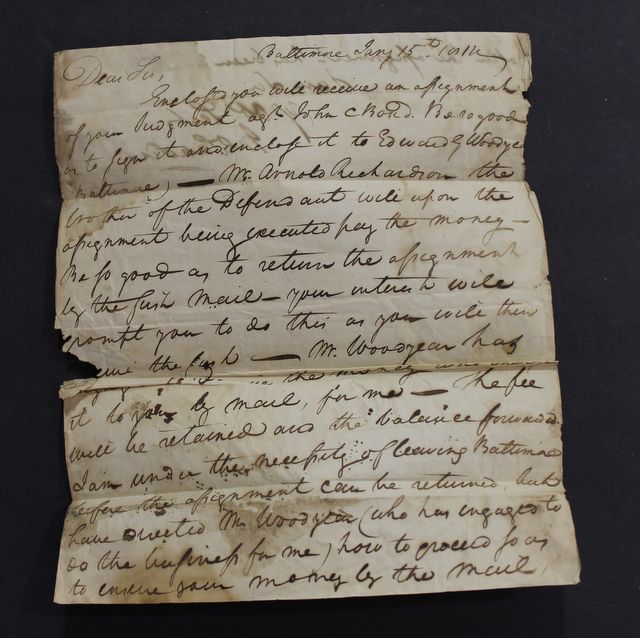 Baltimore Jany 15th
Dear Sir,
Enclosed you will receive an assignment
of your Judgment agt. John C Bond. Be so good
as to sign it and enclose it to Edward G Woodyear
Baltimore) — Mr. Arnold Richardson the
brother of the Defendant will upon the
assignment being executed pay the money —
Be so good as to return the assignment
by the first mail — your interest will
prompt you to do this as you will then
the Cash — Mr. Woodyear has
the money
it to you by mail, for me — The fee
will be retained and the balance forwarded.
I am under the necessity of leaving Baltimore
before the assignment can be returned, but
have directed Mr. Woodyear (who has engaged to
do the business for me) how to proceed so as
to ensure your money by the mail,